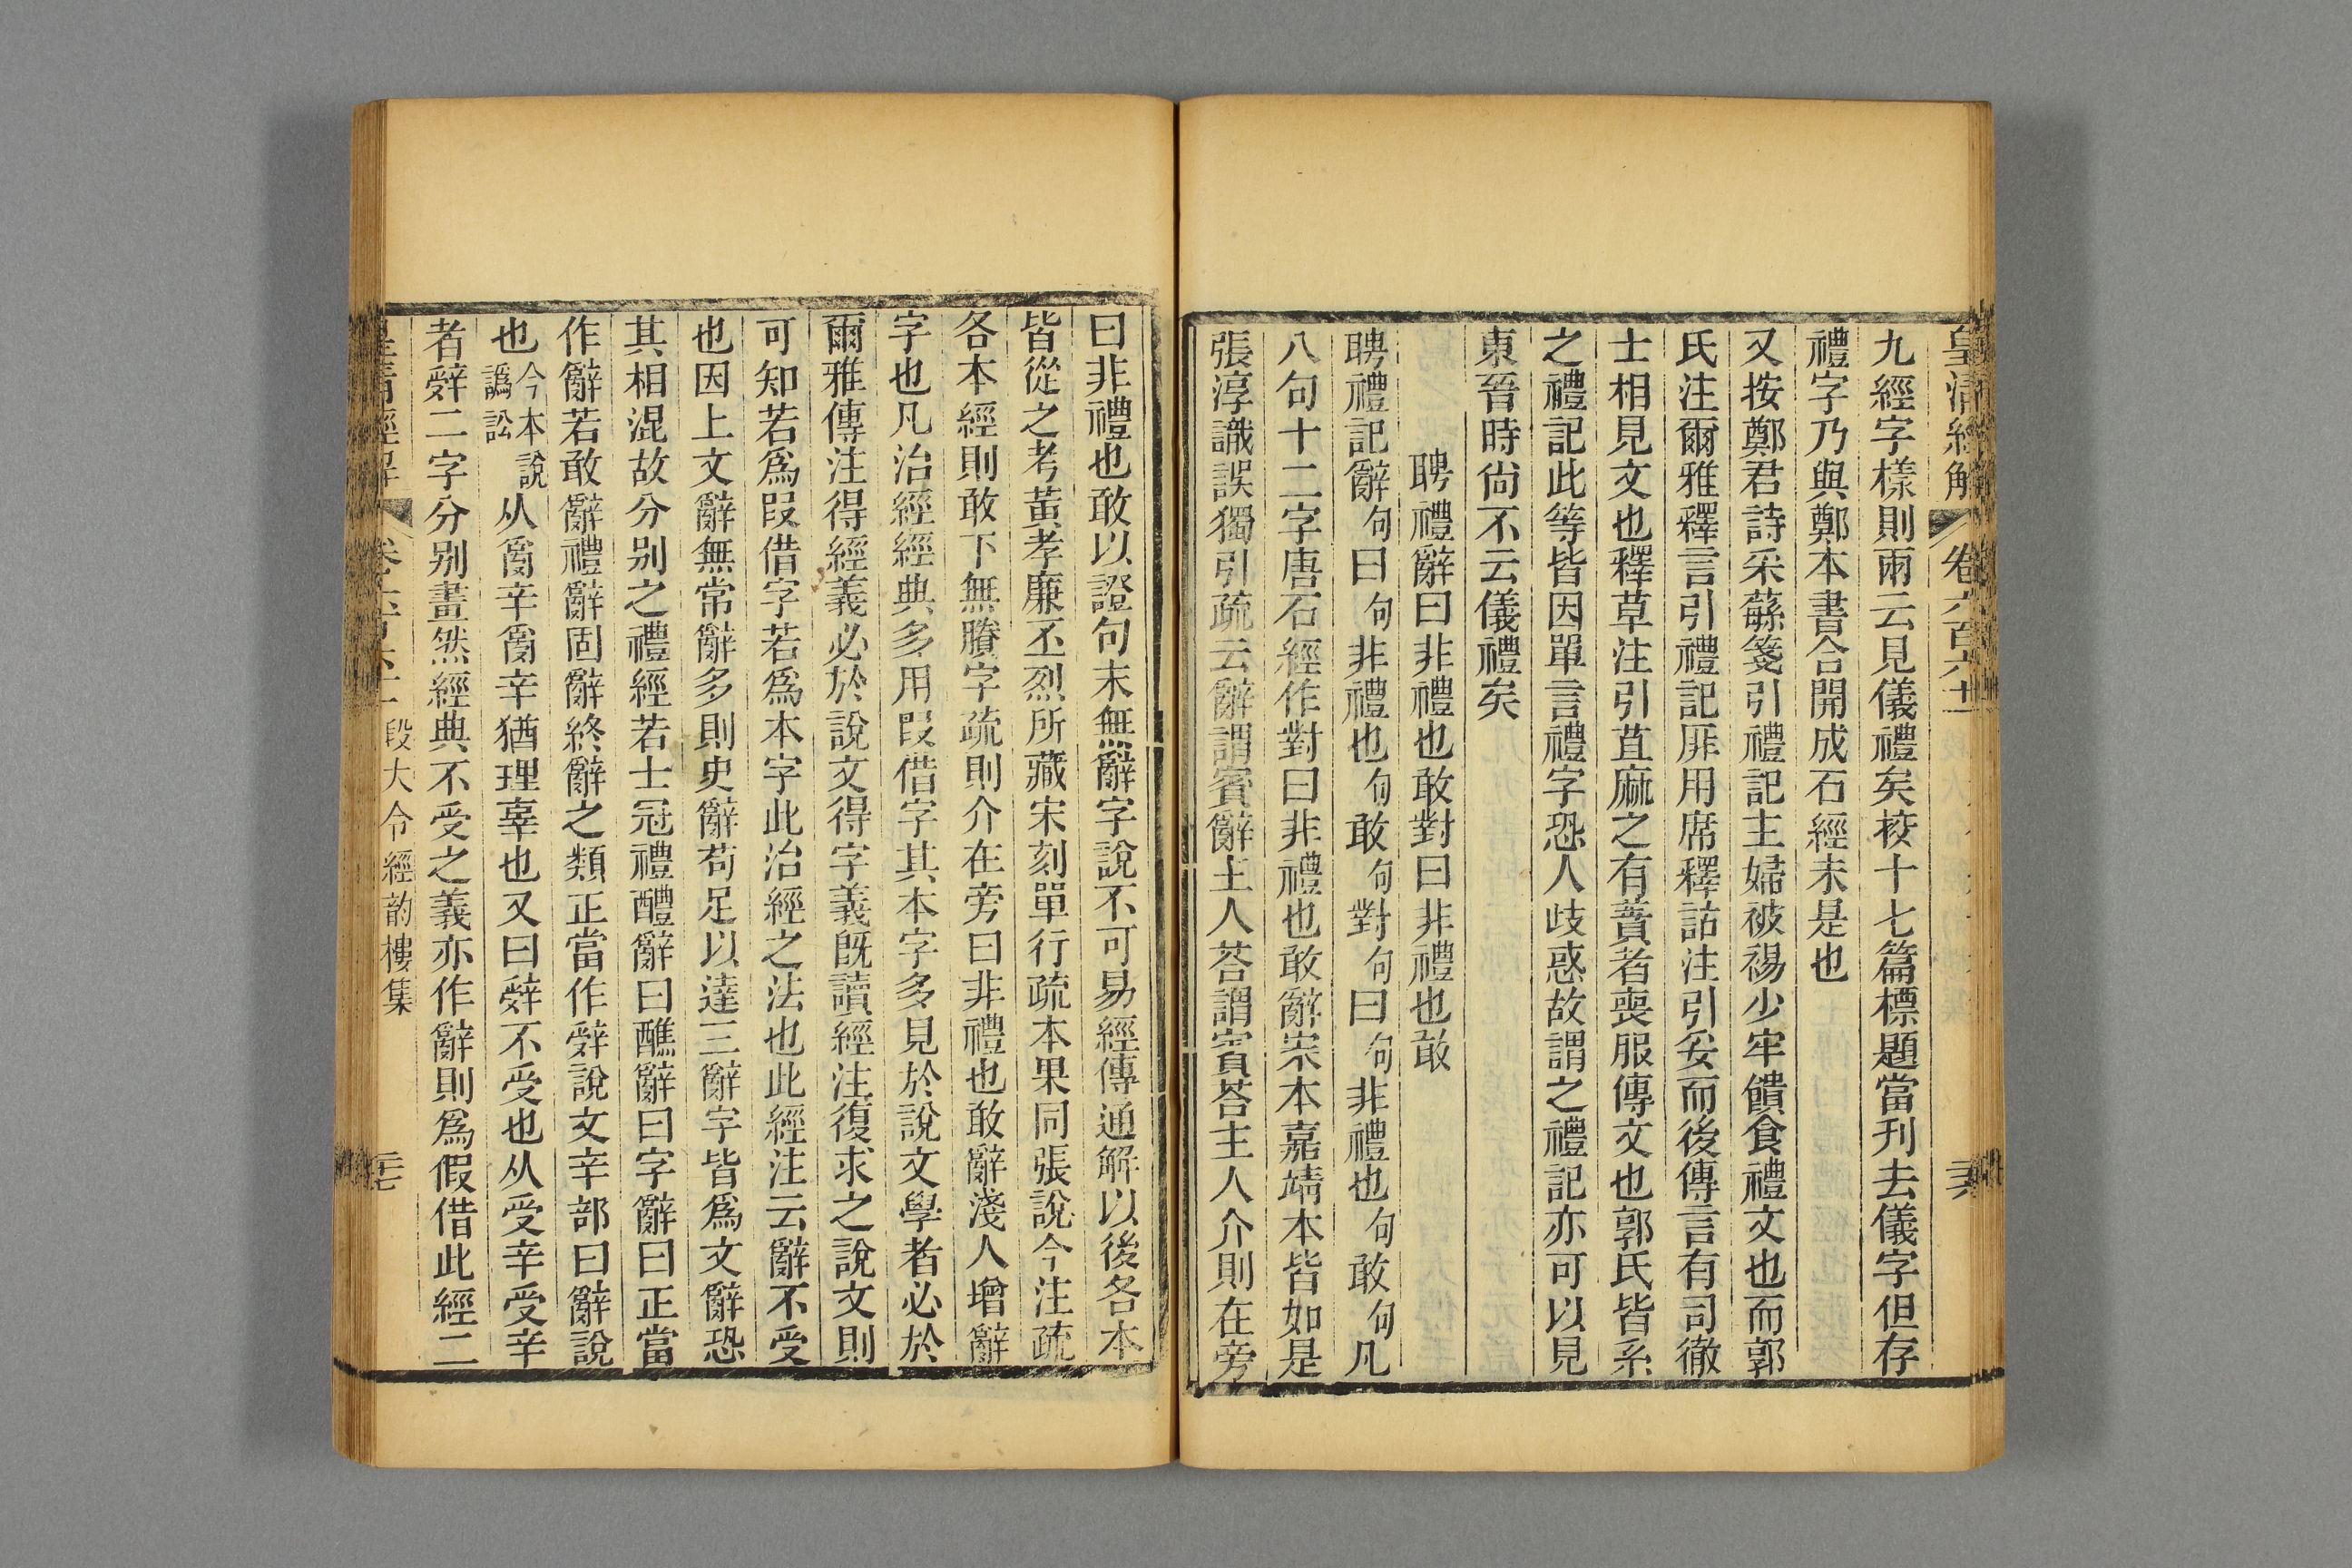 皇清經解 卷六百六十一 三六
九經字樣則兩云見儀禮矣挍十七篇標題當刋去儀字但存
禮字乃與鄭本書合開成石經未是也
又按鄭君詩采蘇箋引禮記主婦被裼少牢饋食禮文也而郭
氏注爾雅釋言引禮記厞用席釋詁注引妥而後傳言有司徹
士相見文也釋草注引苴麻之有蕡者喪服傳文也郭氏皆系
之禮記此等皆因單言禮字恐人歧惑故謂之禮記亦可以見
東晉時尙不云儀禮矣
聘禮辭曰非禮也敢對曰非禮也敢
聘禮記辭句曰句非禮也句敢句對句曰句非禮也句敢句凡
八句十二字唐石經作對曰非禮也敢辭宋本嘉靖本皆如是
張淳識誤獨引疏云辭謂賓辭主人荅謂賓荅主人介則在旁
曰非禮也敢以證句末無辭字說不可易經傳通解以後各本
皆從之考黃孝廉丕烈所藏宋刻單行疏本果同張說今注疏
各本經則敢下無賸字疏則介在旁曰非禮也敢辭淺人增辭
字也凡治經經典多用叚借字其本字多見於說文學者必於
爾雅傳注得經義必於說文得字義既讀經注復求之說文則
可知若爲叚借字若爲本字此治經之法也此經注云辭不受
也因上文辭無常辭多則史辭苟足以達三辭字皆爲文辭恐
其相混故分别之禮經若士冠禮醴辭曰醮辭曰字辭曰正當
作辭若敢辭禮辭固辭終辭之類正當作辤說文辛部曰辭說
也今本說譌訟从𤔔辛𤔔辛猶理辜也又曰辤不受也从受辛受辛
者辤二字分别畫然經典不受之義亦作辭則爲假借此經二
皇清經解 段大令經韵樓集 三七